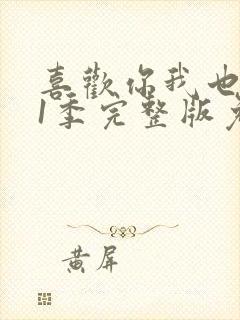 喜歡你我也
1季完整版
黄屏